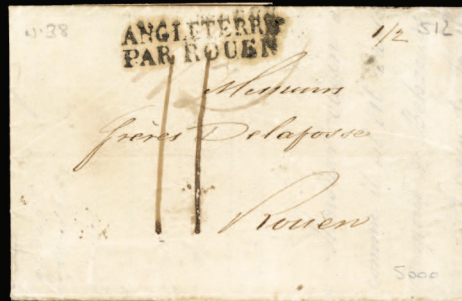 N·38
ANGLETERRE
PAR ROUEN
1/2
512
Messieurs
frères Delafosse
Rouen
5000